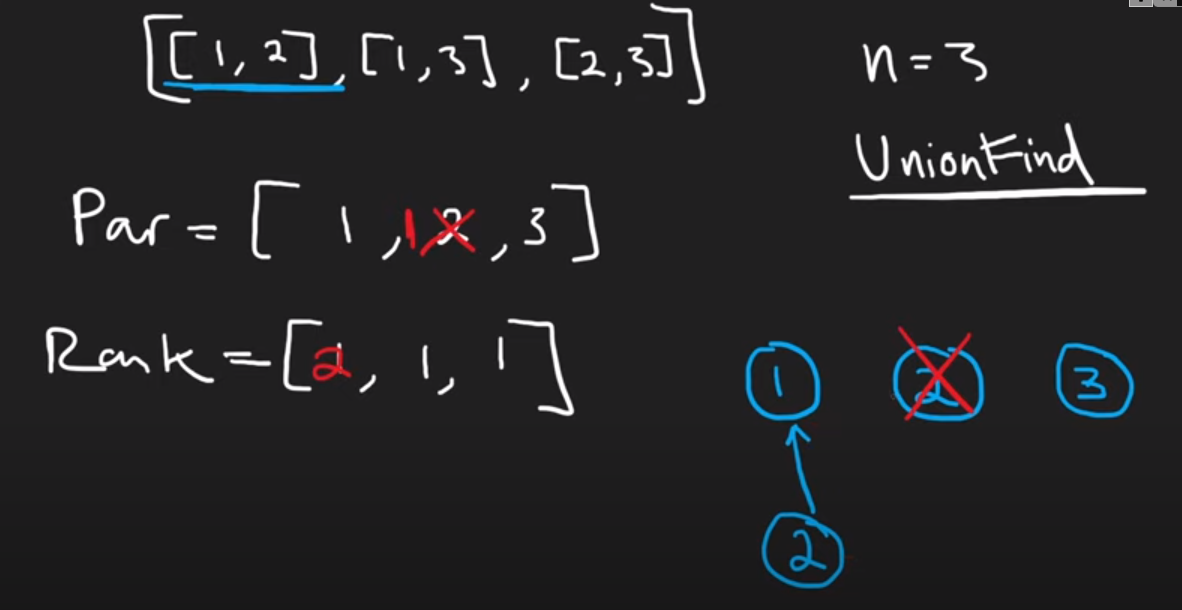 [[1,2],[1,3],[2,3]]
n=3
UnionFind
Par=[1,12,3]
Rank=[2,1,1]
1 2 3
2